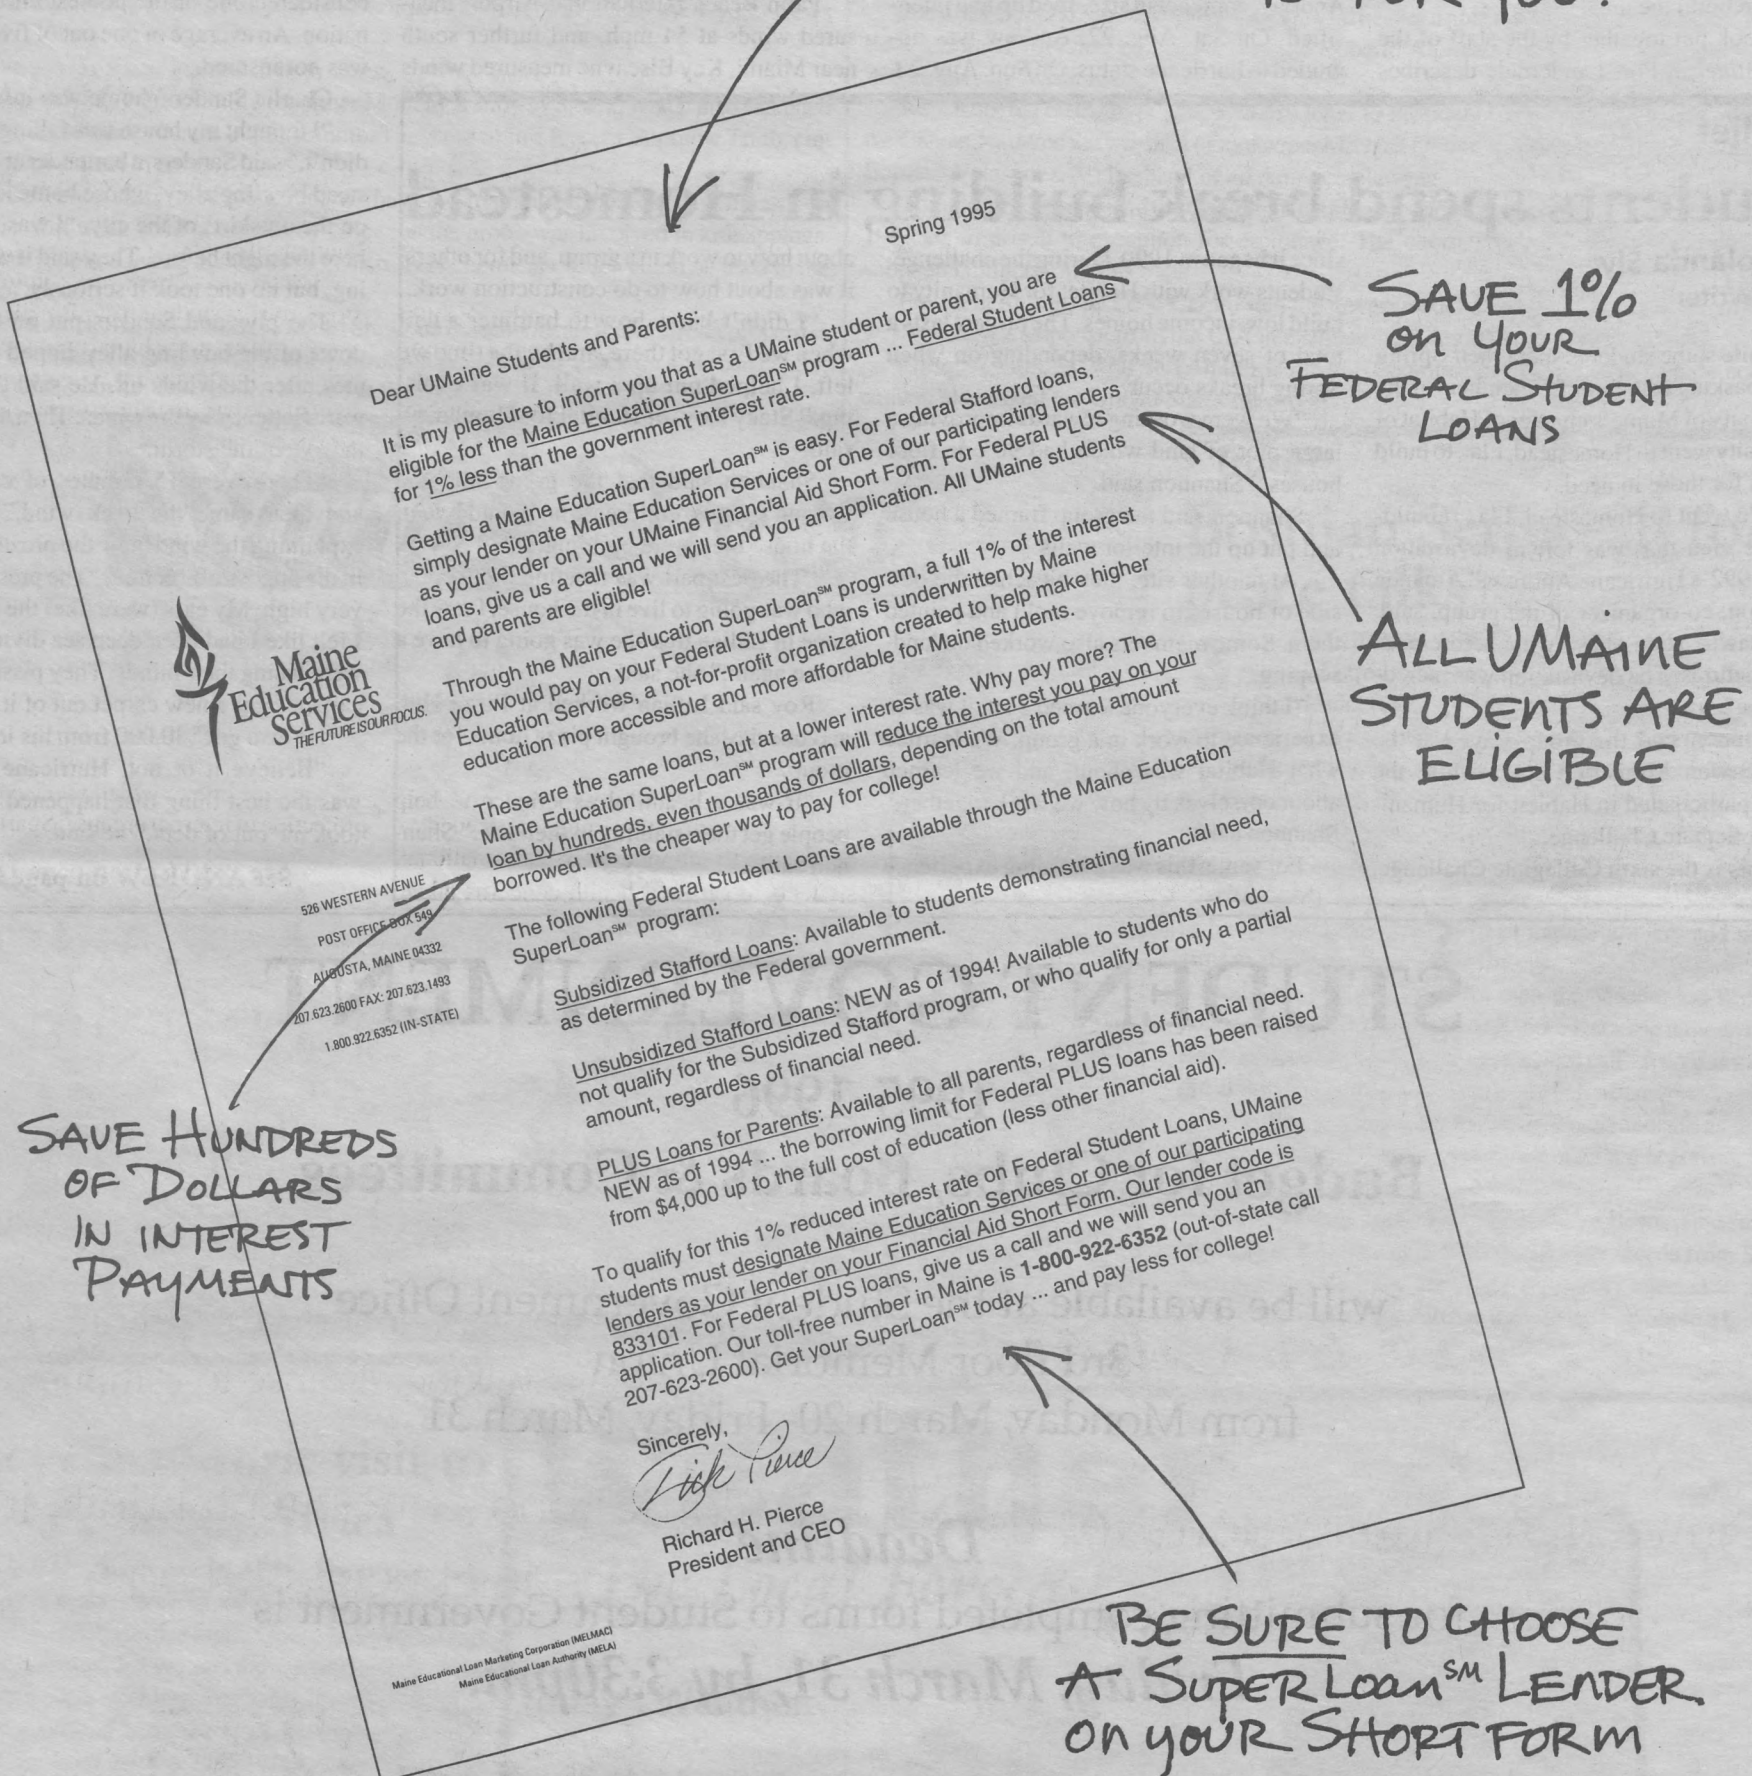 IS FOR YOU!
Spring 1995
Dear UMaine Students and Parents:
It is my pleasure to inform you that as a UMaine student or parent, you are
eligible for the Maine Education SuperLoan℠ program ... Federal Student Loans
for 1% less than the government interest rate.
Getting a Maine Education SuperLoan℠ is easy. For Federal Stafford loans,
simply designate Maine Education Services or one of our participating lenders
as your lender on your UMaine Financial Aid Short Form. For Federal PLUS
loans, give us a call and we will send you an application. All UMaine students
and parents are eligible!
Through the Maine Education SuperLoan℠ program, a full 1% of the interest
you would pay on your Federal Student Loans is underwritten by Maine
Education Services, a not-for-profit organization created to help make higher
education more accessible and more affordable for Maine students.
These are the same loans, but at a lower interest rate. Why pay more? The
Maine Education SuperLoan℠ program will reduce the interest you pay on your
loan by hundreds, even thousands of dollars, depending on the total amount
borrowed. It's the cheaper way to pay for college!
The following Federal Student Loans are available through the Maine Education
SuperLoan℠ program:
Subsidized Stafford Loans: Available to students demonstrating financial need,
as determined by the Federal government.
Unsubsidized Stafford Loans: NEW as of 1994! Available to students who do
not qualify for the Subsidized Stafford program, or who qualify for only a partial
amount, regardless of financial need.
PLUS Loans for Parents: Available to all parents, regardless of financial need.
NEW as of 1994 ... the borrowing limit for Federal PLUS loans has been raised
from $4,000 up to the full cost of education (less other financial aid).
To qualify for this 1% reduced interest rate on Federal Student Loans, UMaine
students must designate Maine Education Services or one of our participating
lenders as your lender on your Financial Aid Short Form. Our lender code is
833101. For Federal PLUS loans, give us a call and we will send you an
application. Our toll-free number in Maine is 1-800-922-6352 (out-of-state call
207-623-2600). Get your SuperLoan℠ today ... and pay less for college!
Sincerely,
Dick Pierce
Richard H. Pierce
President and CEO
Maine
Education
Services
THE FUTURE IS OUR FOCUS.
526 WESTERN AVENUE
POST OFFICE BOX 549
AUGUSTA, MAINE 04332
207.623.2600 FAX: 207.623.1493
1.800.922.6352 (IN-STATE)
Maine Educational Loan Marketing Corporation (MELMAC)
Maine Educational Loan Authority (MELA)
SAVE 1%
on YOUR
FEDERAL STUDENT
LOANS
ALL UMAINE
STUDENTS ARE
ELIGIBLE
SAVE HUNDREDS
OF DOLLARS
IN INTEREST
PAYMENTS
BE SURE TO CHOOSE
A SUPERLOAN℠ LENDER
ON YOUR SHORT FORM